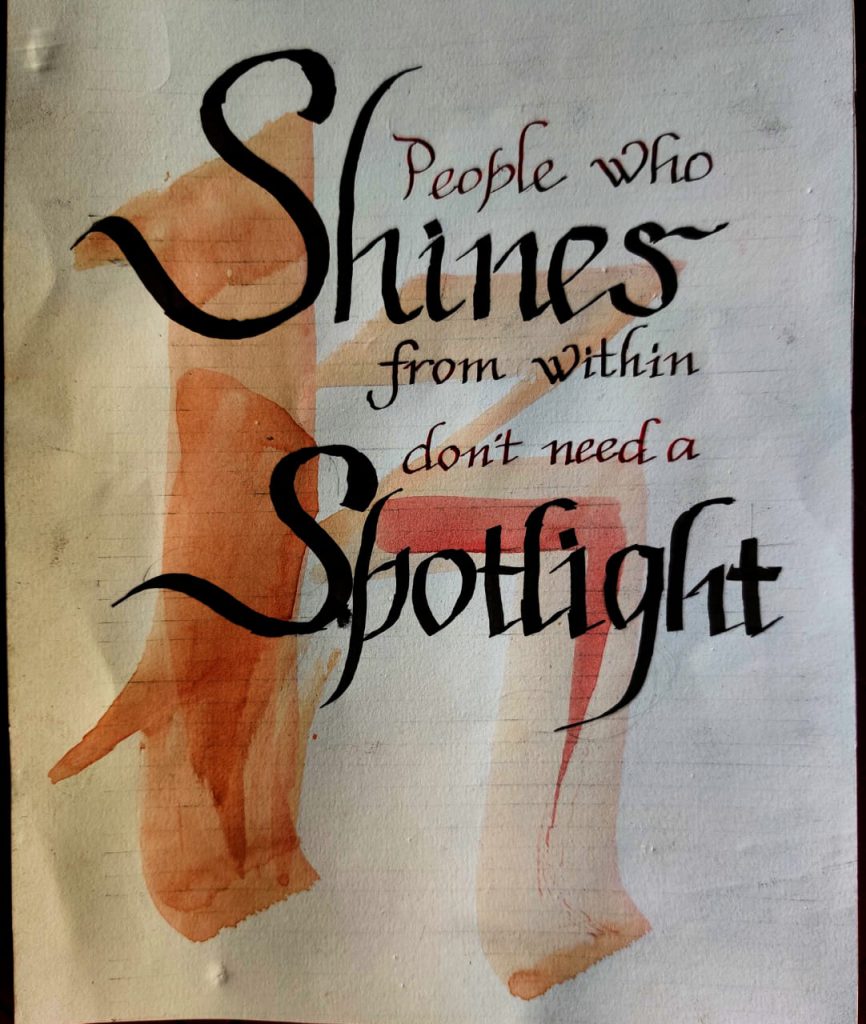 People who
Shines
from within
don't need a
Spotlight